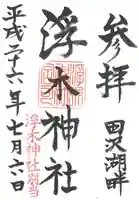 参拝
田沢湖畔
浮木神社
浮木神社別当
平成二十六年七月六日